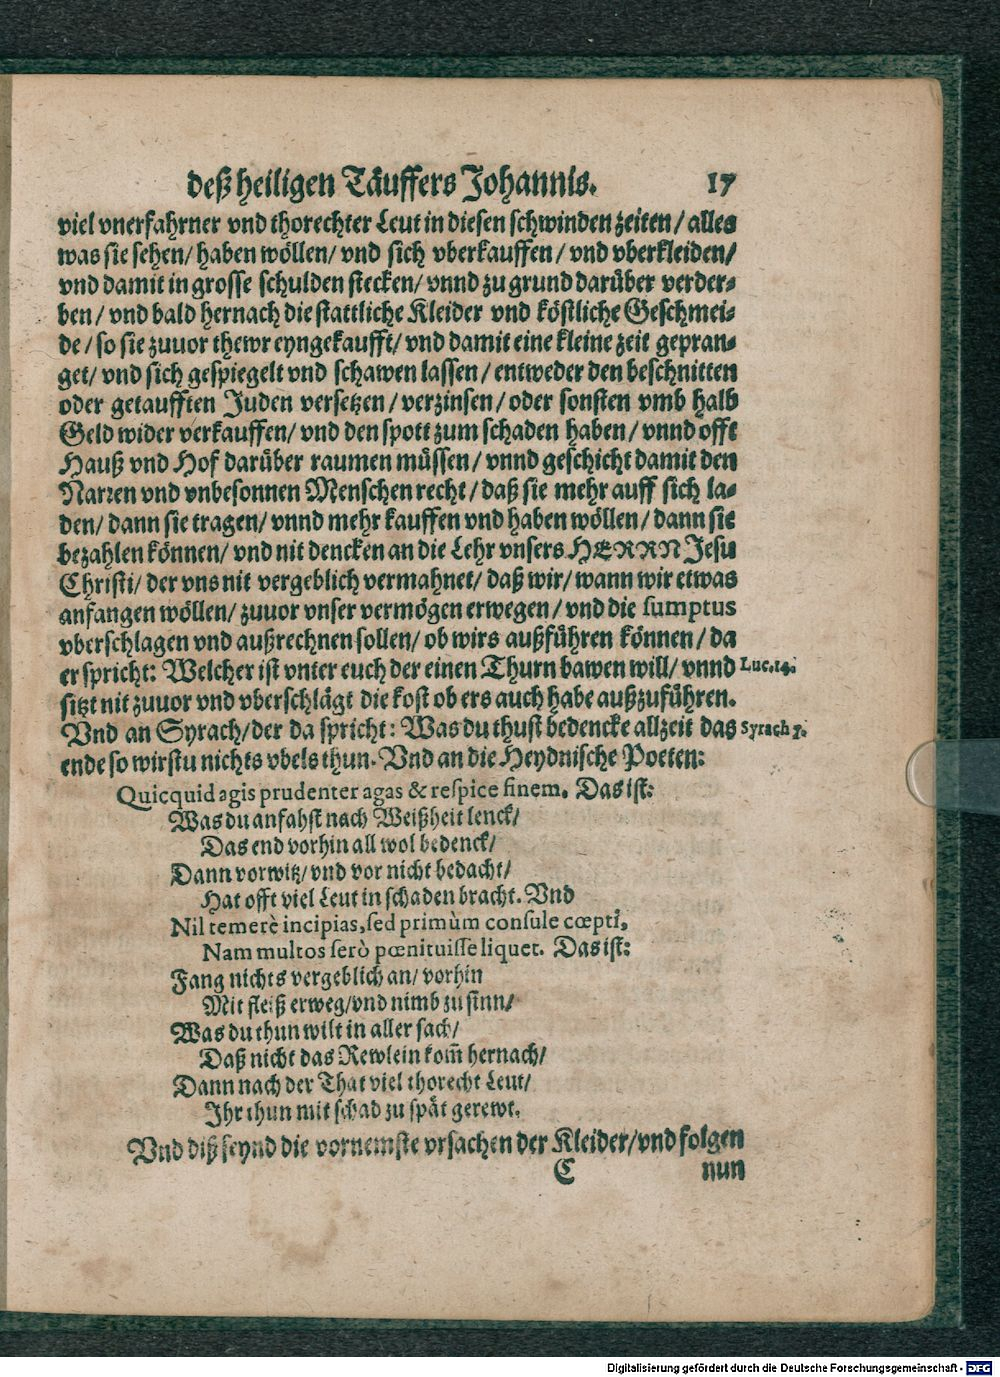 deß heiligen Täuffers Johannis. 17
viel vnerfahrner vnd thorechter Leut in diesen schwinden zeiten / alles
was sie sehen / haben wöllen / vnd sich vberkauffen / vnd vberkleiden /
vnd damit in grosse schulden stecken / vnnd zu grund darüber verder-
ben / vnd bald hernach die stattliche Kleider vnd köstliche Geschmei-
de / so sie zuuor thewr eyngekaufft / vnd damit eine kleine zeit gepran-
get / vnd sich gespiegelt vnd schawen lassen / entweder den beschnitten
oder getaufften Juden versetzen / verzinsen / oder sonsten vmb halb
Geld wider verkauffen / vnd den spott zum schaden haben / vnnd offt
Hauß vnd Hof darüber raumen müssen / vnnd geschicht damit den
Narren vnd vnbesonnen Menschen recht / daß sie mehr auff sich la-
den / dann sie tragen / vnnd mehr kauffen vnd haben wöllen / dann sie
bezahlen können / vnd nit dencken an die Lehr vnsers HERRN Jesu
Christi / der vns nit vergeblich vermahnet / daß wir / wann wir etwas
anfangen wöllen / zuuor vnser vermögen erwegen / vnd die sumptus
vberschlagen vnd außrechnen sollen / ob wirs außführen können / da
er spricht: Welcher ist vnter euch der einen Thurn bawen will / vnnd Luc. 14.
sitzt nit zuuor vnd vberschlägt die kost ob ers auch habe außzuführen.
Vnd an Syrach / der da spricht: Was du thust bedencke allzeit das Syrach 7.
ende so wirstu nichts vbels thun. Vnd an die Heydnische Poeten:
Quicquid agis prudenter agas & respice finem. Das ist:
Was du anfahst nach Weißheit lenck /
Das end vorhin all wol bedenck /
Dann vorwitz / vnd vor nicht bedacht /
Hat offt viel Leut in schaden bracht. Vnd
Nil temerè incipias, sed primùm consule cœpti,
Nam multos serò pœnituisse liquet. Das ist:
Fang nichts vergeblich an / vorhin
Mit fleiß erweg / vnd nimb zu sinn /
Was du thun wilt in aller sach /
Daß nicht das Rewlein kom̃ hernach /
Dann nach der That viel thorecht Leut /
Ihr thun mit schad zu spät gerewt.
Vnd diß seynd die vornemste vrsachen der Kleider / vnd folgen
C nun
Digitalisierung gefördert durch die Deutsche Forschungsgemeinschaft - DFG